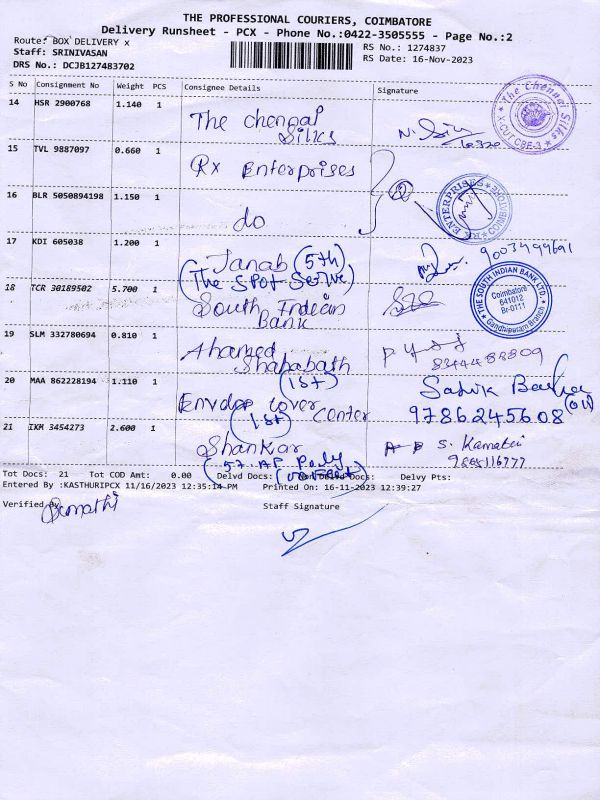 THE PROFESSIONAL COURIERS, COIMBATORE
Delivery Runsheet - PCX - Phone No.:0422-3505555 - Page No.:2
Route: BOX DELIVERY x
Staff: SRINIVASAN
DRS No.: DCJB127483702
RS No.: 1274837
RS Date: 16-Nov-2023
S No Consignment No Weight PCS Consignee Details Signature
14 HSR 2900768 1.140 1 The Chennai Silks
The Chennai Silks X-CUT CBE-3
15 TVL 9887097 0.660 1 Rx Enterprises
16 BLR 5050894198 1.150 1 do
RX ENTERPRISES COIMBATORE
17 KDI 605038 1.200 1 Janab (5th) 9003499691
(The Spot Serve)
18 TCR 30189502 5.700 1 South Indian Bank
THE SOUTH INDIAN BANK LTD. Coimbatore 641012 Br-0111 Gandhipuram Branch
19 SLM 332780694 0.810 1 Ahamed Shababath 8344488809
(1st)
20 MAA 862228194 1.110 1 Envelop cover Center
9786245608
(1st)
21 IKM 3454273 2.600 1 Shankar S. Kamatchi
Tot Docs: 21 Tot COD Amt: 0.00 Delvd Docs: Non Delvd Docs: Delvy Pts:
Entered By :KASTHURIPCX 11/16/2023 12:35:14 PM Printed On: 16-11-2023 12:39:27
Verified By
Staff Signature